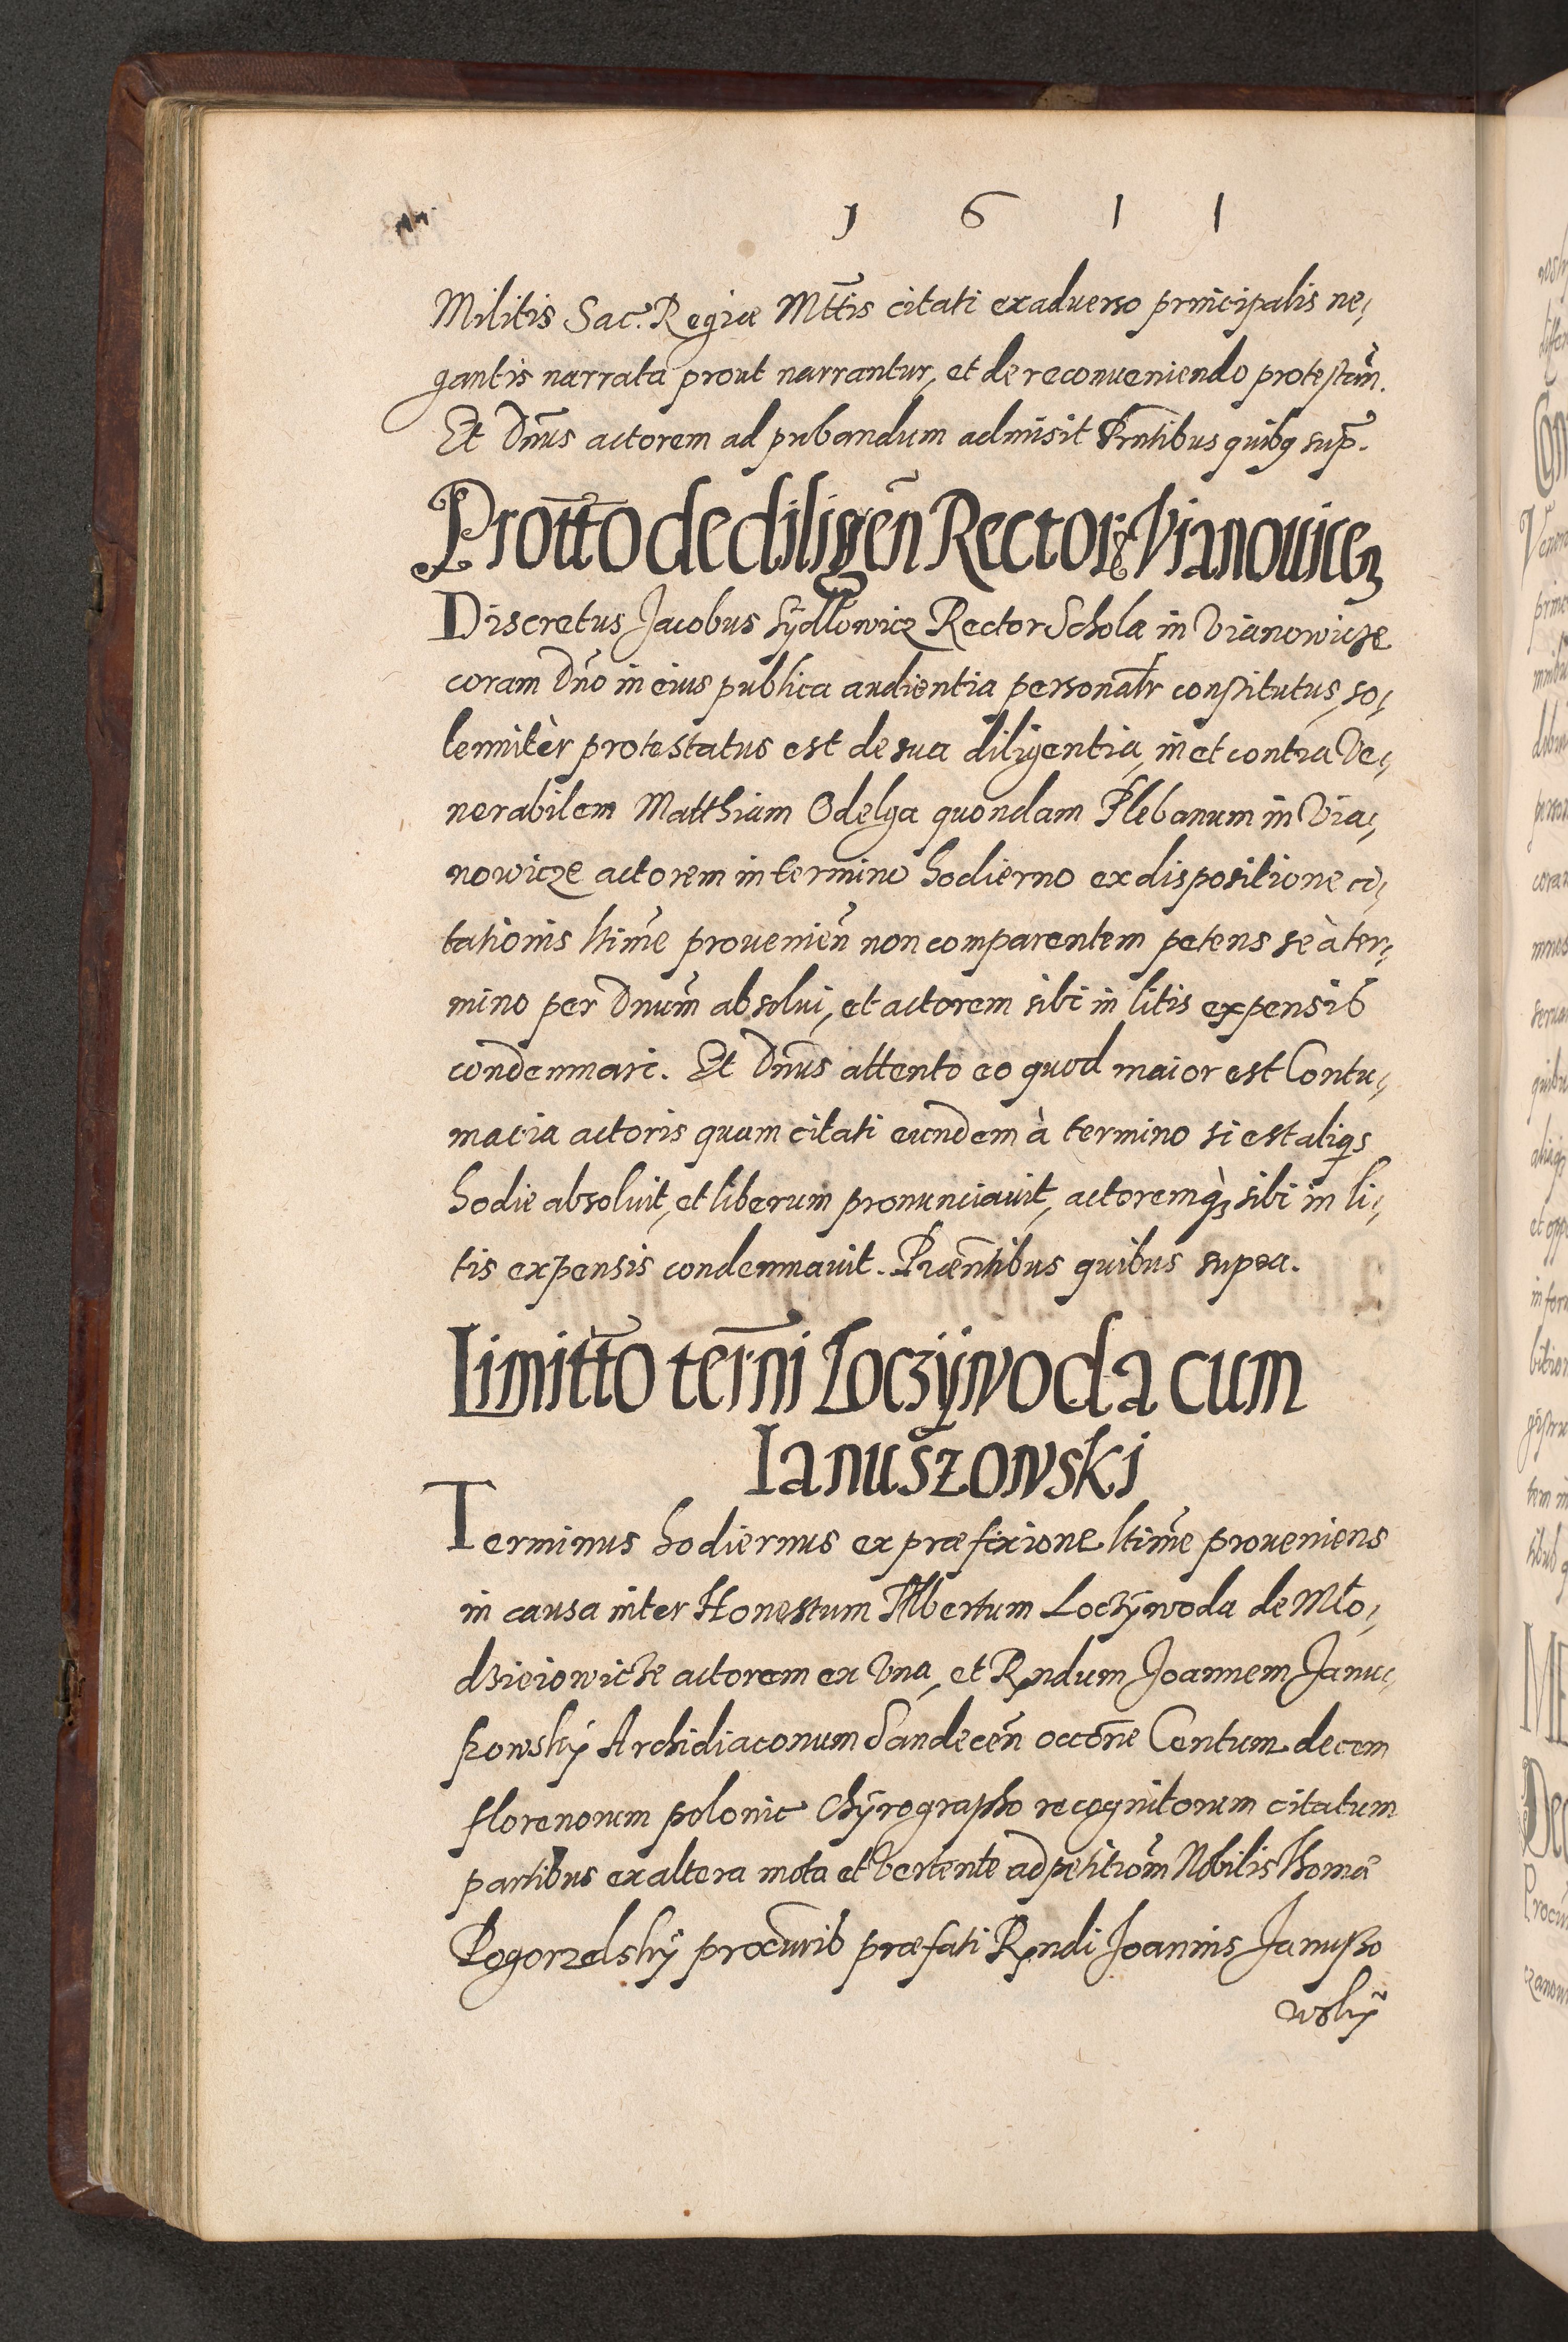 1 6 1 1
Militis Sac. Regiæ Mttis citati exaduerso principalis ne,
gantis narrata prout narrantur, et de reconueniendo protestan̄.
Et Dnūs actorem ad pubandum admisit Prntibus quibq sup̄.
Protto de diligēn Rector Vianouicen
Discretus Jacobus Sÿdlowicz Rector Scholæ in Vianowicze
coram Dn̄o in eius publica audientia personalr constitutus, so,
lemnitèr protestatus est de sua diligentia, in et contra Ve,
nerabilem Matthiam Odelga quondam Plebanum in Via,
nowicze actorem in termino hodierno ex dispositione ci,
tationis ltimē prouenien̄ non comparentem petens se à ter,
mino per Dnum̄ absolui, et actorem sibi in litis expensis
condemnari. Et Dnūs attento eo quod maior est Contu,
macia actoris quam citati eundem à termino si est aliqs
hodie absoluit, et liberum pronunciauit, actoremq̀ sibi in li,
tis expensis condemnauit. Præntibus quibus supra.
Limitto termi Loczÿwoda cum
Ianuszowski
Terminus hodiernus ex præfixione ltimē proueniens
in causa inter Honestum Albertum Loczÿwoda de Mło,
dzieiowicze actorem ex Vna, et Rndum Joannem Janu,
szowskÿ Archidiaconum Sandecēn occōne Centum decem
florenorum polonic Chÿrographo recognitorum citatum
partibus ex altera mota et Vertente ad petitiōm Nobilis Thomæ
Pogorzelskÿ procūris præfati Rndi Joannis Januszo
wskÿ